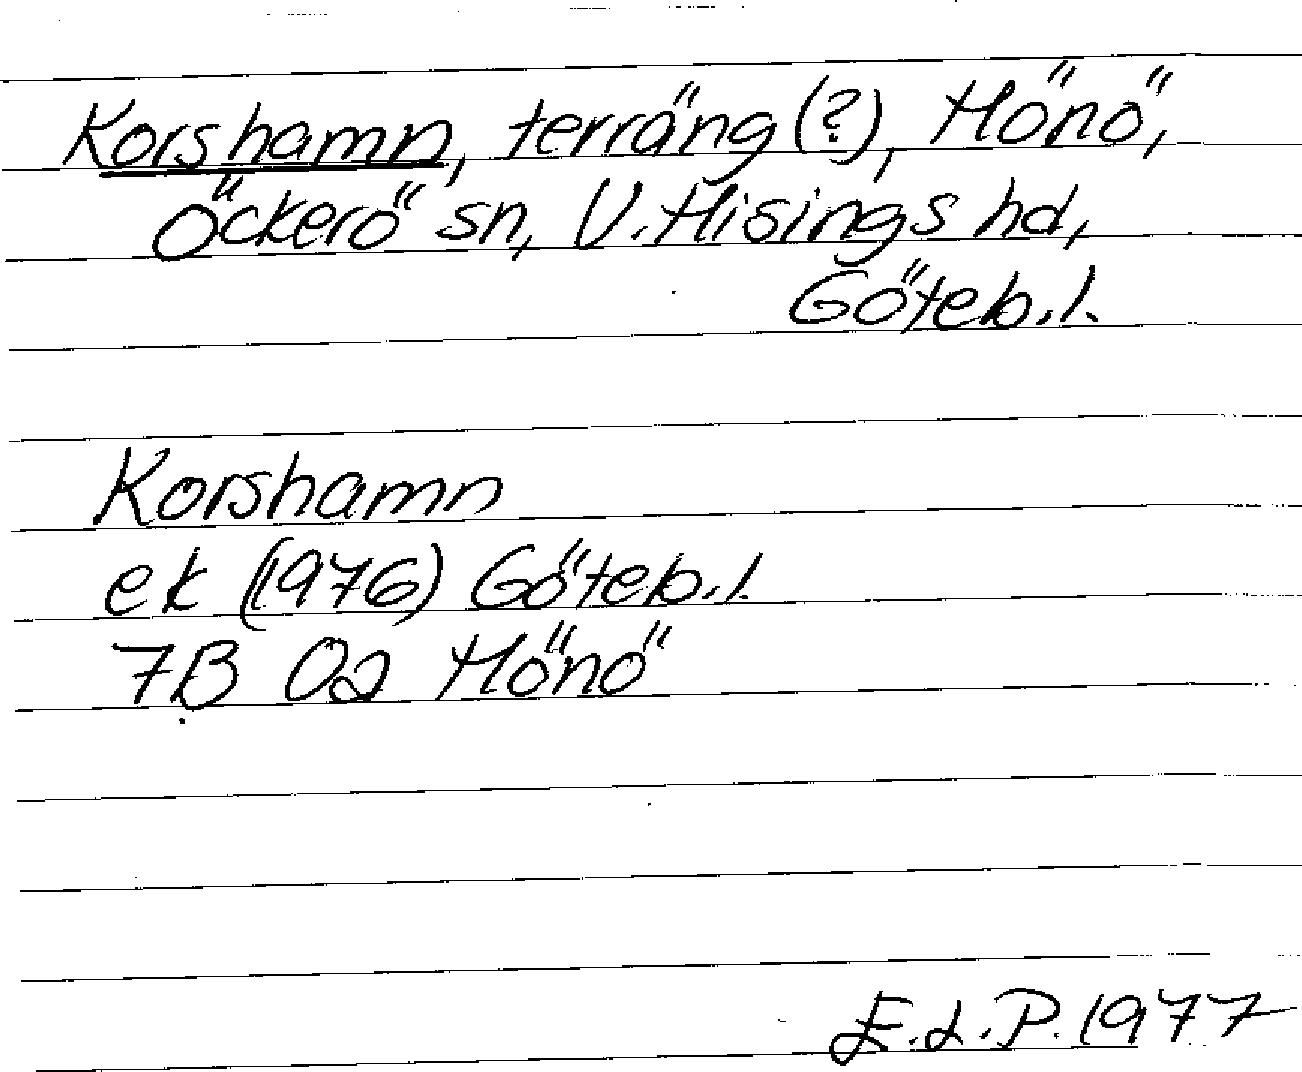 Korshamn, terräng (?), Hönö,
Öckerö sn, V. Hisings hd,
Göteb. l.
Korshamn
ek (1976) Göteb. l.
7B 0a Hönö
E.L.P. 1977